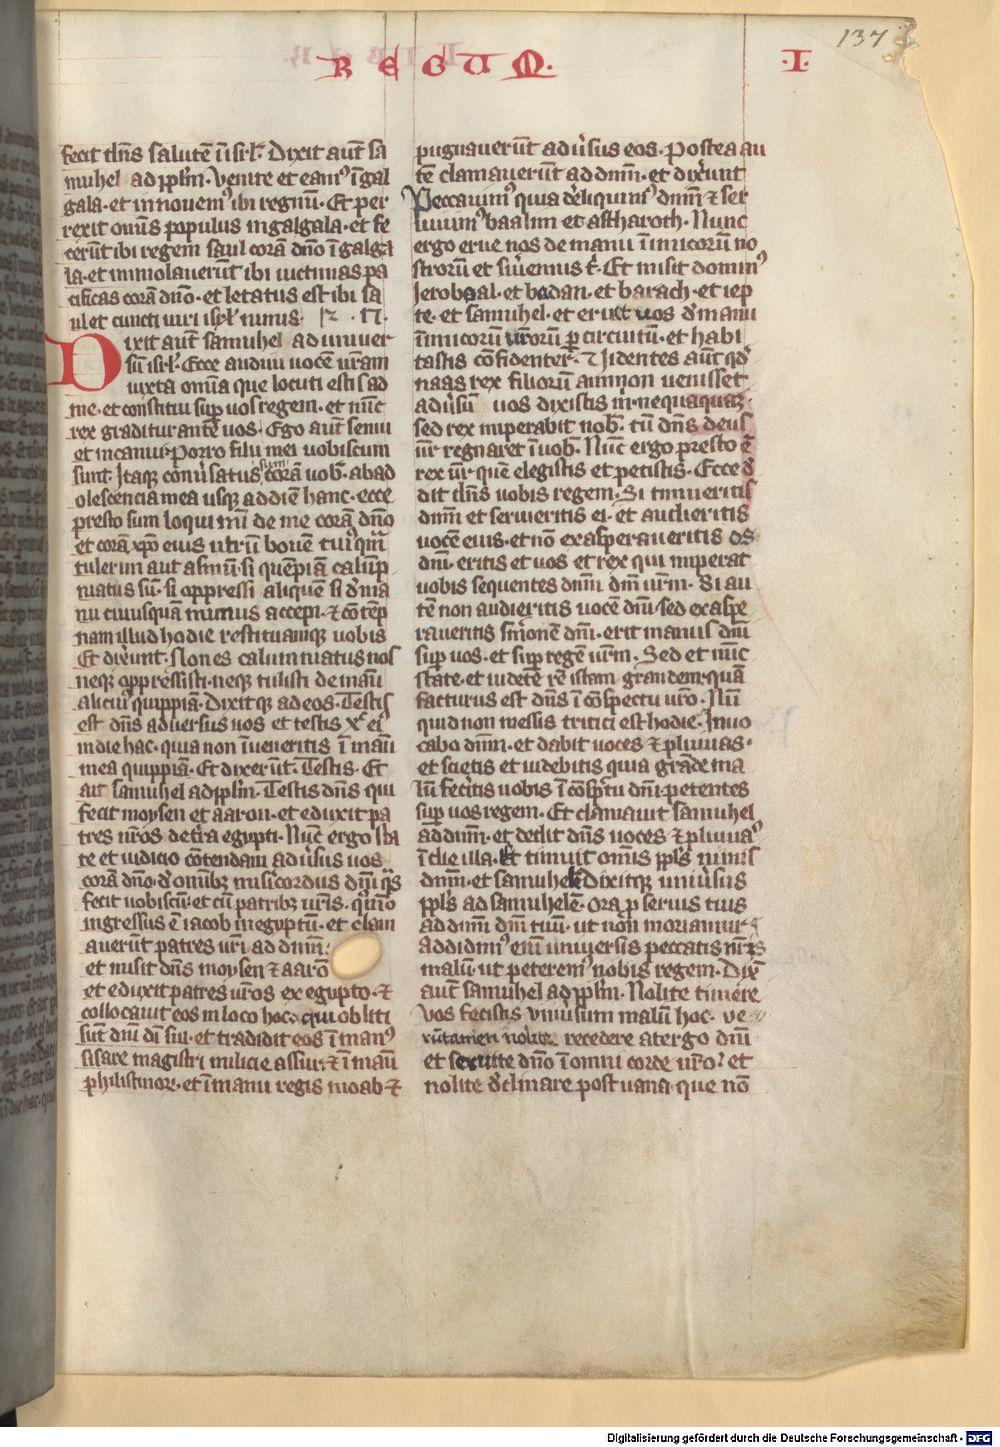 137
REGUM. .I.
fecit dn̄s salutē ī isrl̄. Dixit aūt sa
muhel ad pplm̄. Venite et eamꝰ ī gal
gala. et innovemꝰ ibi regnū. Et per
rexit omīs populus in galgala. et fe
cerūt ibi regem saul corā dn̄o ī galga
la. et immolaverūt ibi victimas pa
cificas corā dn̄o. et letatus est ibi sa
ul et cuncti viri isrl̄ nimis.
Dixit aūt samuhel ad univer
sū isrl̄. Ecce audivi vocē vr̄am
iuxta om̄ia que locuti estis ad
me. et constitui sup̄ vos regem. et nūc
rex graditur ante vos. Ego aūt senui
et incanui. Porro filii mei vobiscum
sunt. Itaqꝫ conv̄satus sum corā vob̄. ab ad
olescencia mea usqꝫ ad diem hanc. ecce
presto sum loqui mī de me corā dn̄o
et corā xp̄o eius utrū bovē tuī qm̄
tulerim aut asinū. si quēpiā calūp
niatus sū. si oppressi aliquē si d̄ ma
nu cuiusquā munus accepi. ⁊ cōtēp
nam illud hodie restituamqꝫ vobis
Et dix̄unt. Non es calumniatus nos
neqꝫ oppressisti. neqꝫ tulisti de manū
alicuiꝰ quippiā. Dixitqꝫ ad eos. Testis
est dn̄s adversus vos et testis xp̄c eiꝰ
in die hac. quia non īveneritis ī manū
mea quippiā. Et dixerūt. Testis. Et
ait samuhel ad pplm̄. Testis dn̄s qui
fecit moysen et aaron. et eduxit pa
tres nr̄os de tr̄a egypti. Nūc ergo sta
te et iudicio cōtendam adv̄sus vos
corā dn̄o. d̄ om̄ibꝫ mis̄icordiis dn̄i q̄s
fecit vobiscū. et cū patribꝫ vr̄is. quō
ingressus ē iacob in egyptū. et clam
averūt patres vr̄i ad dnm̄.
et misit dn̄s moysen ⁊ aarō
et eduxit patres vr̄os ex egypto. ⁊
collocavit eos in loco hoc. qui obliti
sūt dn̄i dī sui. et tradidit eos ī manꝰ
sisare magistri milicie assur. ⁊ ī manū
philistinoꝝ. et ī manu regis moab ⁊
pugnaverūt adv̄sus eos. Postea au
tē clamaverūt ad dnm̄. et dix̄unt
Peccavimꝰ quia d̄reliquimꝰ dnm̄ ⁊ ser
vivimꝰ baalim et astharoth. Nunc
ergo erue nos de manu īimicorū no
strorū et s̄viemus t̄. Et misit dominꝰ
Jerobaal. et badan. et barach. et iep
te. et samuhel. et eruit vos d̄ manu
īimicorū vr̄orū p̄ circuitū. et habi
tastis cōfidenter. Videntes aūt qd̄
naas rex filiorū ammon venisset
adv̄sū vos dixistis m̄. nequaquaꝫ
sed rex imperabit nob̄. tū dn̄s deus
vr̄ regnaret ī vob̄. Nūc ergo presto ē
rex vr̄ quē elegistis et petistis. Ecce d̄
dit dn̄s vobis regem. Si timueritis
dnm̄ et servieritis ei. et audieritis
vocē eius. et nō exasperaveritis os
dn̄i. eritis et vos et rex qui imperat
vobis sequentes dnm̄ dm̄ vr̄m. Si au
tē non audieritis vocē dn̄i. sed exaspe
raveritis s̄monē dn̄i. erit manus dn̄i
sup̄ vos. et sup̄ regē vr̄m. Sed et nūc
state. et videte rē istam grandem. quā
facturus est dn̄s ī cōspectu vr̄o. Nū
quid non messis tritici est hodie. Invo
cabo dnm̄. et dabit voces ⁊ pluvias.
et scietis et videbitis quia grāde ma
lū fecitis vobis ī cōsp̄tu dn̄i. petentes
sup̄ vos regem. Et clamavit samuhel
ad dnm̄. et dedit dn̄s voces ⁊ pluviaꝰ
ī die illa. Et timuit omīs ppl̄s nimis
dnm̄. et samuhelē. Dixitqꝫ univ̄sus
ppl̄s ad samuhelē. Ora p̄ servis tuis
ad dnm̄ dm̄ tuū. ut nōn moriamur
Addidimꝰ enī universis peccatis nr̄is
malū. ut peteremꝰ nobis regem. Dix̄
aūt samuhel ad pplm̄. Nolite timere
vos fecistis univ̄sum malū hoc. ve
rūtamen nolite recedere a tergo dn̄i
et servite dn̄o ī omni corde vr̄o. et
nolite d̄clinare post vana. que nō
Digitalisierung gefördert durch die Deutsche Forschungsgemeinschaft - DFG